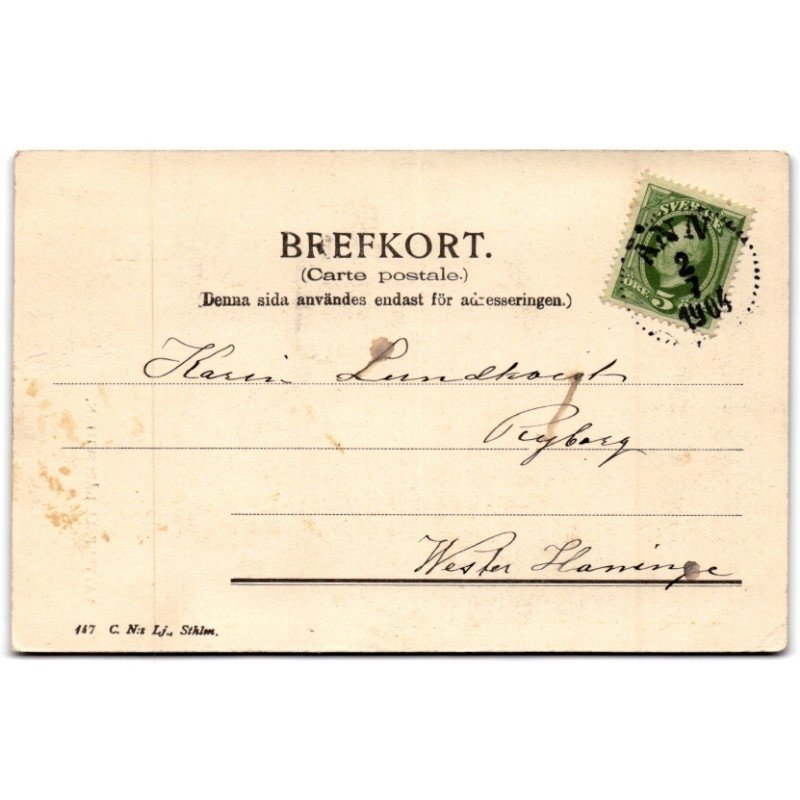 BREFKORT.
(Carte postale.)
Denna sida användes endast för adresseringen.)
SVERIGE
5
ÖRE
ÅNN
2
7
1904
Karin Lundkvist
Wester Haninge
147 C. N:s Lj., Sthlm.